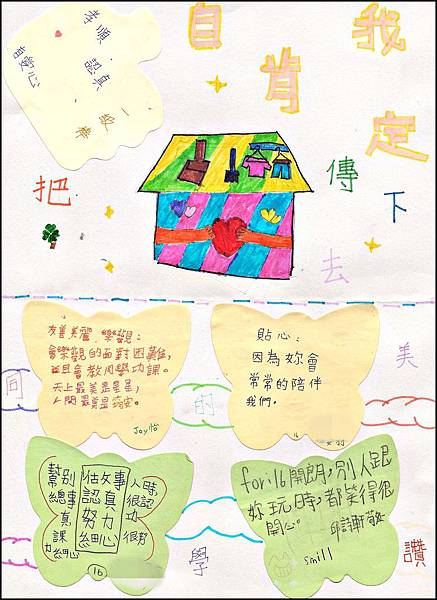 自我
肯定
孝順、認真、一級棒
有愛心
把
傳
下
去
友善美麗、樂觀:
會樂觀的面對困難,
並且會教同學功課.
天上最美是星星,
人間最美是
Joy怡
貼心:
因為妳會
常常的陪伴
我們.
16
同
的
美
學
讚
做事
認真
努力
細心
幫別人時
總事很認
真功
課很努
力細心
16
for:16開朗,別人跟
妳玩時,都笑得很
開心。
smill